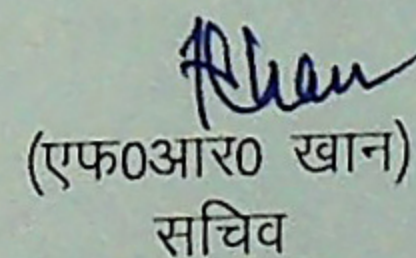 (एफ0आर0 खान)
सचिव